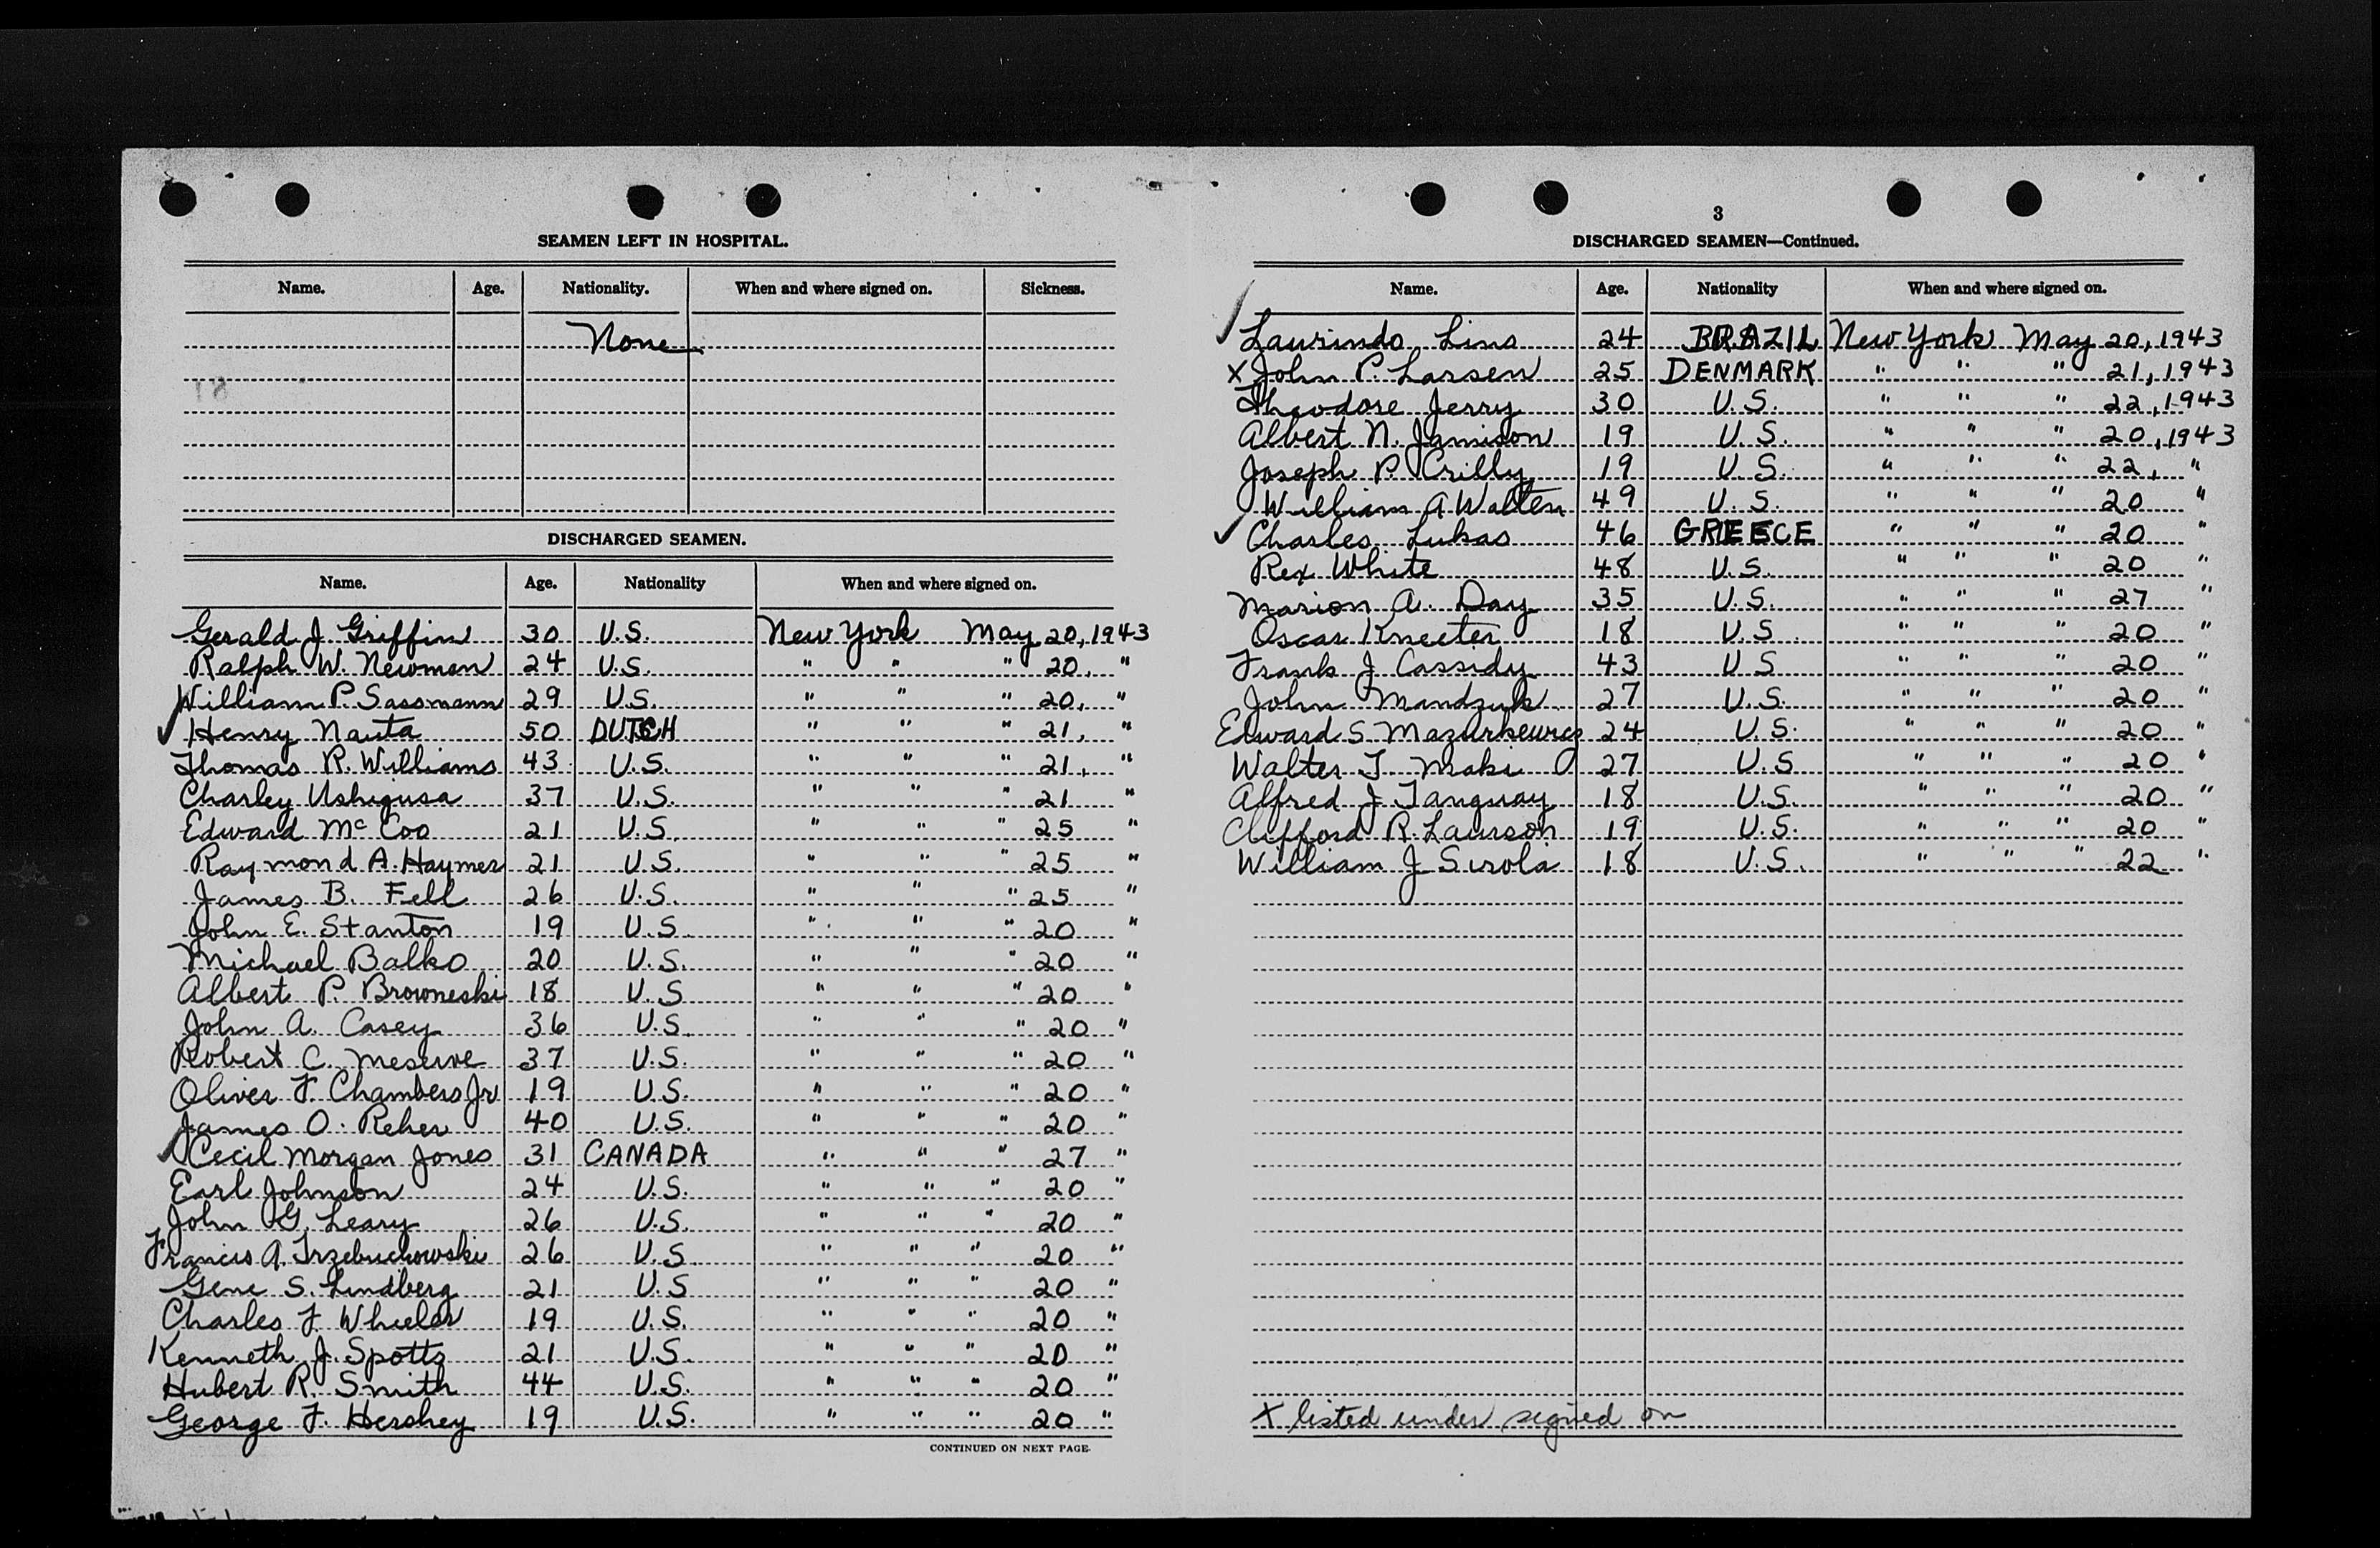 SEAMEN LEFT IN HOSPITAL.
Name. Age. Nationality. When and where signed on. Sickness.
None
18
DISCHARGED SEAMEN.
Name. Age. Nationality When and where signed on.
Gerald J Griffin 30 U.S. New York May 20, 1943
Ralph W. Newman 24 U.S. " " " 20, "
William P. Sassmann 29 U.S. " " " 20, "
✓ Henry Nauta 50 DUTCH " " " 21, "
Thomas R. Williams 43 U.S. " " " 21, "
Charley Ushigusa 37 U.S. " " " 21 "
Edward McCoo 21 U.S. " " " 25 "
Raymond A. Haymer 21 U.S. " " " 25 "
James B. Fell 26 U.S. " " " 25 "
John E. Stanton 19 U.S. " " " 20 "
Michael Balko 20 U.S. " " " 20 "
Albert P. Browneski 18 U.S " " " 20 "
John A. Casey 36 U.S. " " " 20 "
Robert C. Meserve 37 U.S. " " " 20 "
Oliver F. Chambers Jr 19 U.S. " " " 20 "
James O. Reher 40 U.S. " " " 20 "
✓ Cecil Morgan Jones 31 CANADA " " " 27 "
Earl Johnson 24 U.S. " " " 20 "
John G. Leary 26 U.S. " " " 20 "
Francis A. Trzebuchowski 26 U.S " " " 20 "
Gene S. Lindberg 21 U.S " " " 20 "
Charles F. Wheeler 19 U.S. " " " 20 "
Kenneth J. Spotts 21 U.S. " " " 20 "
Hubert R. Smith 44 U.S. " " " 20 "
George F. Hershey 19 U.S. " " " 20 "
CONTINUED ON NEXT PAGE.
3
DISCHARGED SEAMEN—Continued.
Name. Age. Nationality When and where signed on.
✓ Laurindo Lins 24 BRAZIL New York May 20, 1943
x John P. Larsen 25 DENMARK " " " 21, 1943
Theodore Jerry 30 U.S. " " " 22, 1943
Albert N. Jamison 19 U.S. " " " 20, 1943
Joseph P. Crilly 19 U.S. " " " 22, "
William A Walten 49 U.S. " " " 20 "
✓ Charles Lukas 46 GREECE " " " 20 "
Rex White 48 U.S. " " " 20 "
Marion A. Day 35 U.S. " " " 27 "
Oscar Kneeter 18 U.S " " " 20 "
Frank J Cassidy 43 U.S " " " 20 "
John Mandzuk 27 U.S. " " " 20 "
Edward S. Mazurkewicz 24 U.S. " " " 20 "
Walter T Maki 27 U.S " " " 20 "
Alfred J Tanguay 18 U.S. " " " 20 "
Clifford R. Laurson 19 U.S. " " " 20 "
William J Sirola 18 U.S. " " " 22 "
x listed under signed on